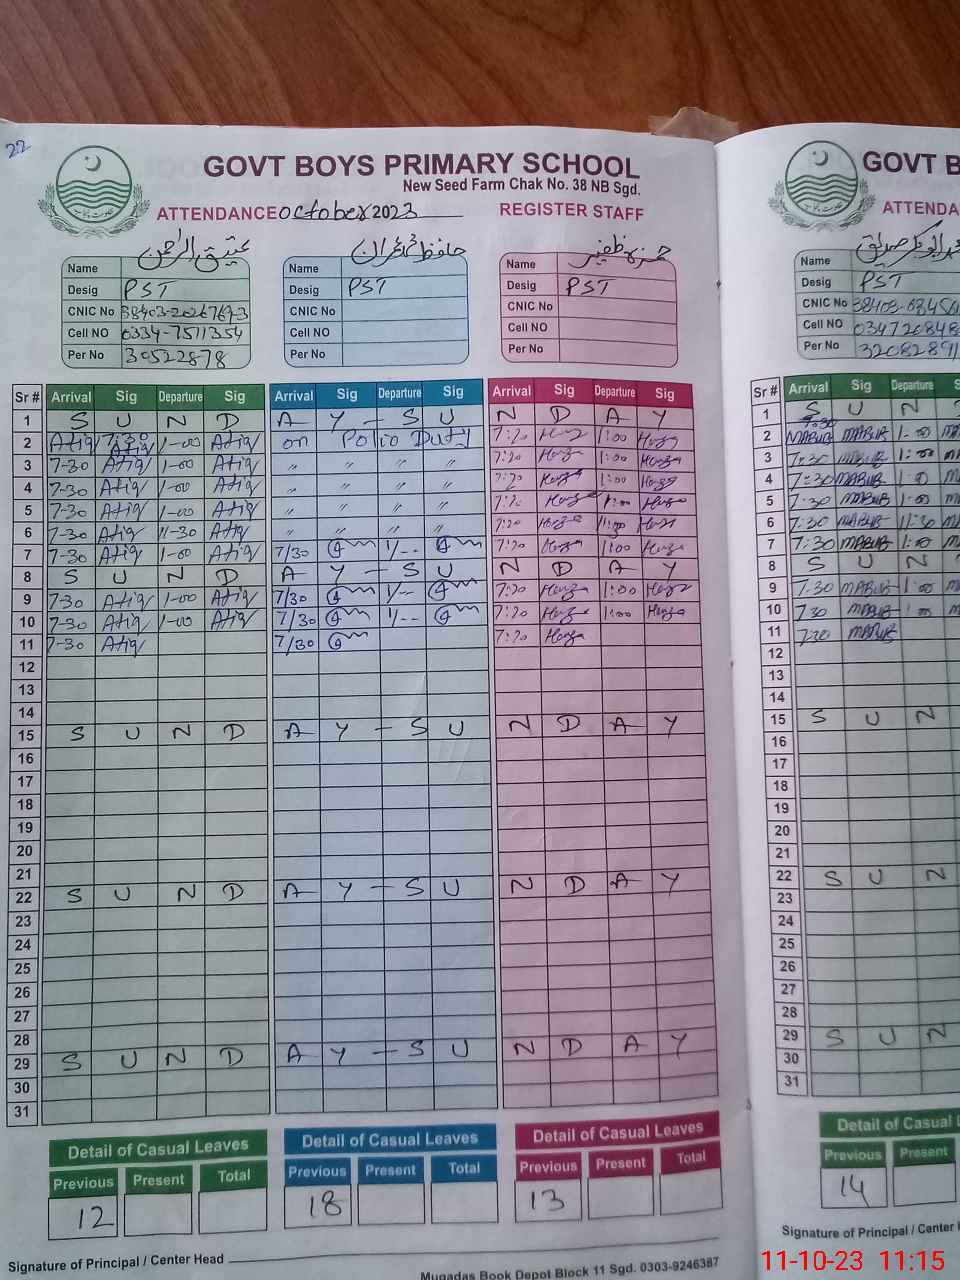 22
GOVT BOYS PRIMARY SCHOOL
New Seed Farm Chak No. 38 NB Sgd.
ATTENDANCE October 2023 REGISTER STAFF
عتیق الرحمن
Name
Desig PST
CNIC No 38403-2026767-3
Cell NO 0334-7511354
Per No 30522878
حافظ محمد عمران
Name
Desig PST
CNIC No
Cell NO
Per No
حمزہ ظفر
Name
Desig PST
CNIC No
Cell NO
Per No
Sr # Arrival Sig Departure Sig Arrival Sig Departure Sig Arrival Sig Departure Sig
1 S U N D A Y - S U N D A Y
2 Atiq 7:30 Atiq 1-00 Atiq on Polio Duty 7:20 1:00
3 7-30 Atiq 1-00 Atiq " " " " 7:20 1:00
4 7-30 Atiq 1-00 Atiq " " " " 7:20 1:00
5 7-30 Atiq 1-00 Atiq " " " " 7:20 1:00
6 7-30 Atiq 11-30 Atiq " " " " 7:20
7 7-30 Atiq 1-00 Atiq 7/30 1/-- 7:20 1:00
8 S U N D A Y - S U N D A Y
9 7-30 Atiq 1-00 Atiq 7/30 1/-- 7:20 1:00
10 7-30 Atiq 1-00 Atiq 7/30 1/-- 7:20 1:00
11 7-30 Atiq 7/30 7:20
12
13
14
15 S U N D A Y - S U N D A Y
16
17
18
19
20
21
22 S U N D A Y - S U N D A Y
23
24
25
26
27
28
29 S U N D A Y - S U N D A Y
30
31
Detail of Casual Leaves Detail of Casual Leaves Detail of Casual Leaves
Previous Present Total Previous Present Total Previous Present Total
12 18 13
Signature of Principal / Center Head
Muqadas Book Depot Block 11 Sgd. 0303-9246387
GOVT B
ATTENDA
ابوبکر صدیق
Name
Desig PST
CNIC No
Cell NO
Per No
Sr # Arrival Sig Departure S
1 S U N
2 7:30 1-00
3 7:30 1:00
4 7:30 1:00
5 7:30 1:00
6 7:30 11:30
7 7:30 1:00
8 S U N
9 7:30 1:00
10 7:30 1:00
11 7:30
12
13
14
15 S U N
16
17
18
19
20
21
22 S U N
23
24
25
26
27
28
29 S U N
30
31
Detail of Casual
Previous Present
14
Signature of Principal / Center
11-10-23 11:15